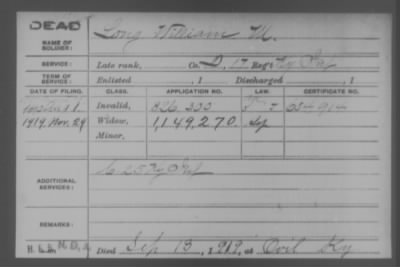 DEAD
NAME OF SOLDIER: Long William M.
SERVICE: Late rank, Co. D, 17 Reg't Ky Inf
TERM OF SERVICE: Enlisted , 1 Discharged , 1
DATE OF FILING. CLASS. APPLICATION NO. LAW. CERTIFICATE NO.
Invalid, 826 330 634914
1919, Nov. 29 Widow, 1,149,270.
Minor,
ADDITIONAL SERVICES: 25 Ky Inf
REMARKS:
Died Sep 13, 1919, at Ky